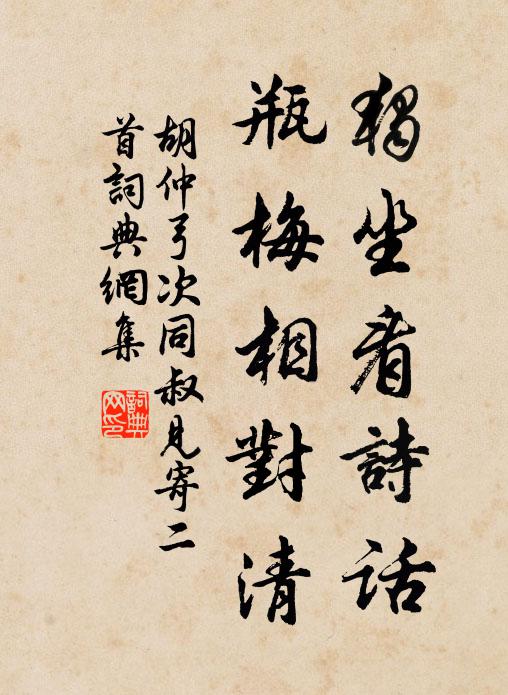 獨坐看詩話
瓶梅相對清
胡仲弓次同叔見寄二
首詞典網集
詞典网印